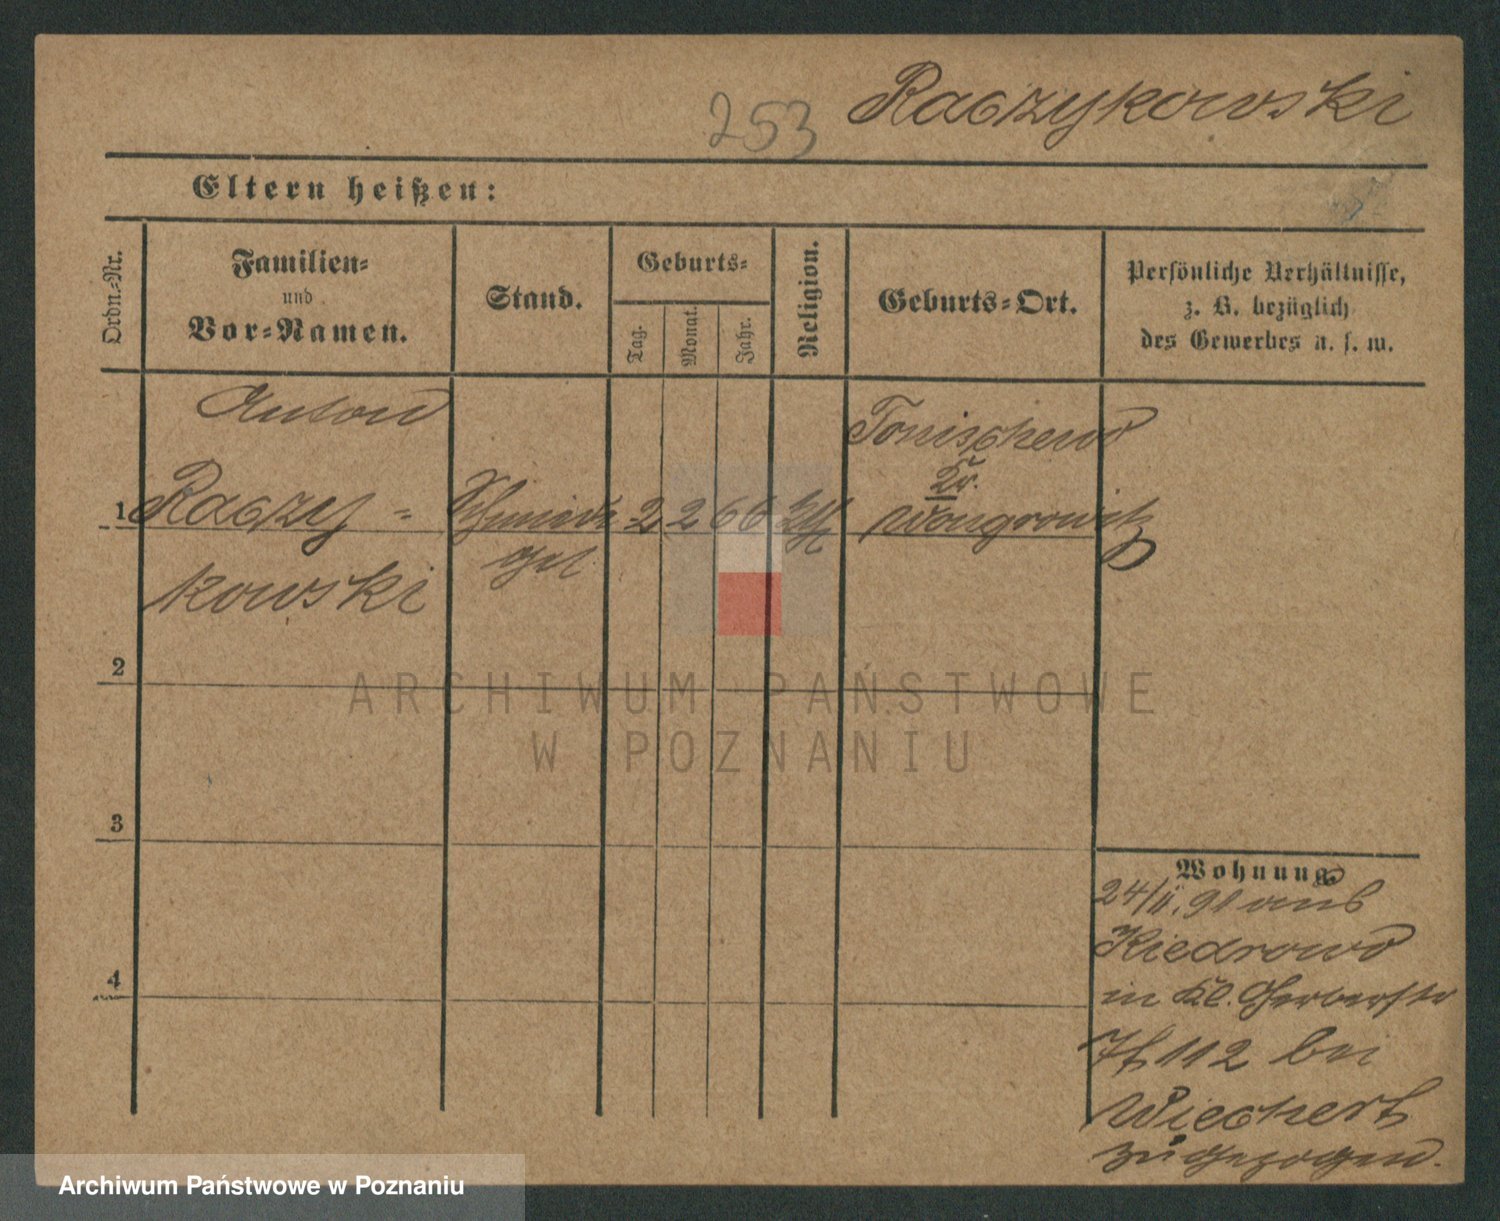 253 Raczykowski
Eltern heißen:
Ordn.-Nr.
Familien-
und
Vor-Namen.
Stand.
Geburts-
Tag.
Monat.
Jahr.
Religion.
Geburts-Ort.
Persönliche Verhältnisse,
z. B. bezüglich
des Gewerbes u. s. w.
Anton
Raczy-
kowski
Schmiede
gel
2 2 66
Tonischewo
Kr.
Wongrowitz
1
2
3
4
Wohnung.
24/II. 91 aus
Kiedrowo
in Kl. Gerberstr
7/8 112 bei
Wiechert
zugezogen.
ARCHIWUM PAŃSTWOWE
W POZNANIU
Archiwum Państwowe w Poznaniu